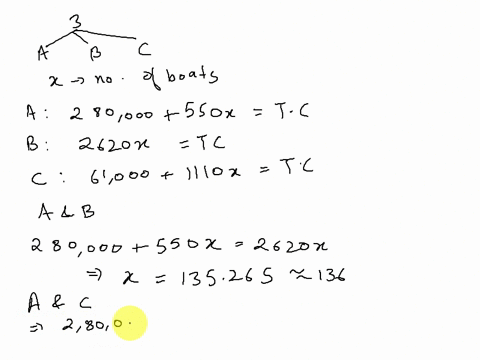 3
A B C
x → no. of boats
A: 280,000 + 550x = T.C
B: 2620x = TC
C: 61,000 + 1110x = T.C
A & B
280,000 + 550x = 2620x
⇒ x = 135.265 ≈ 136
A & C
⇒ 2,80,0